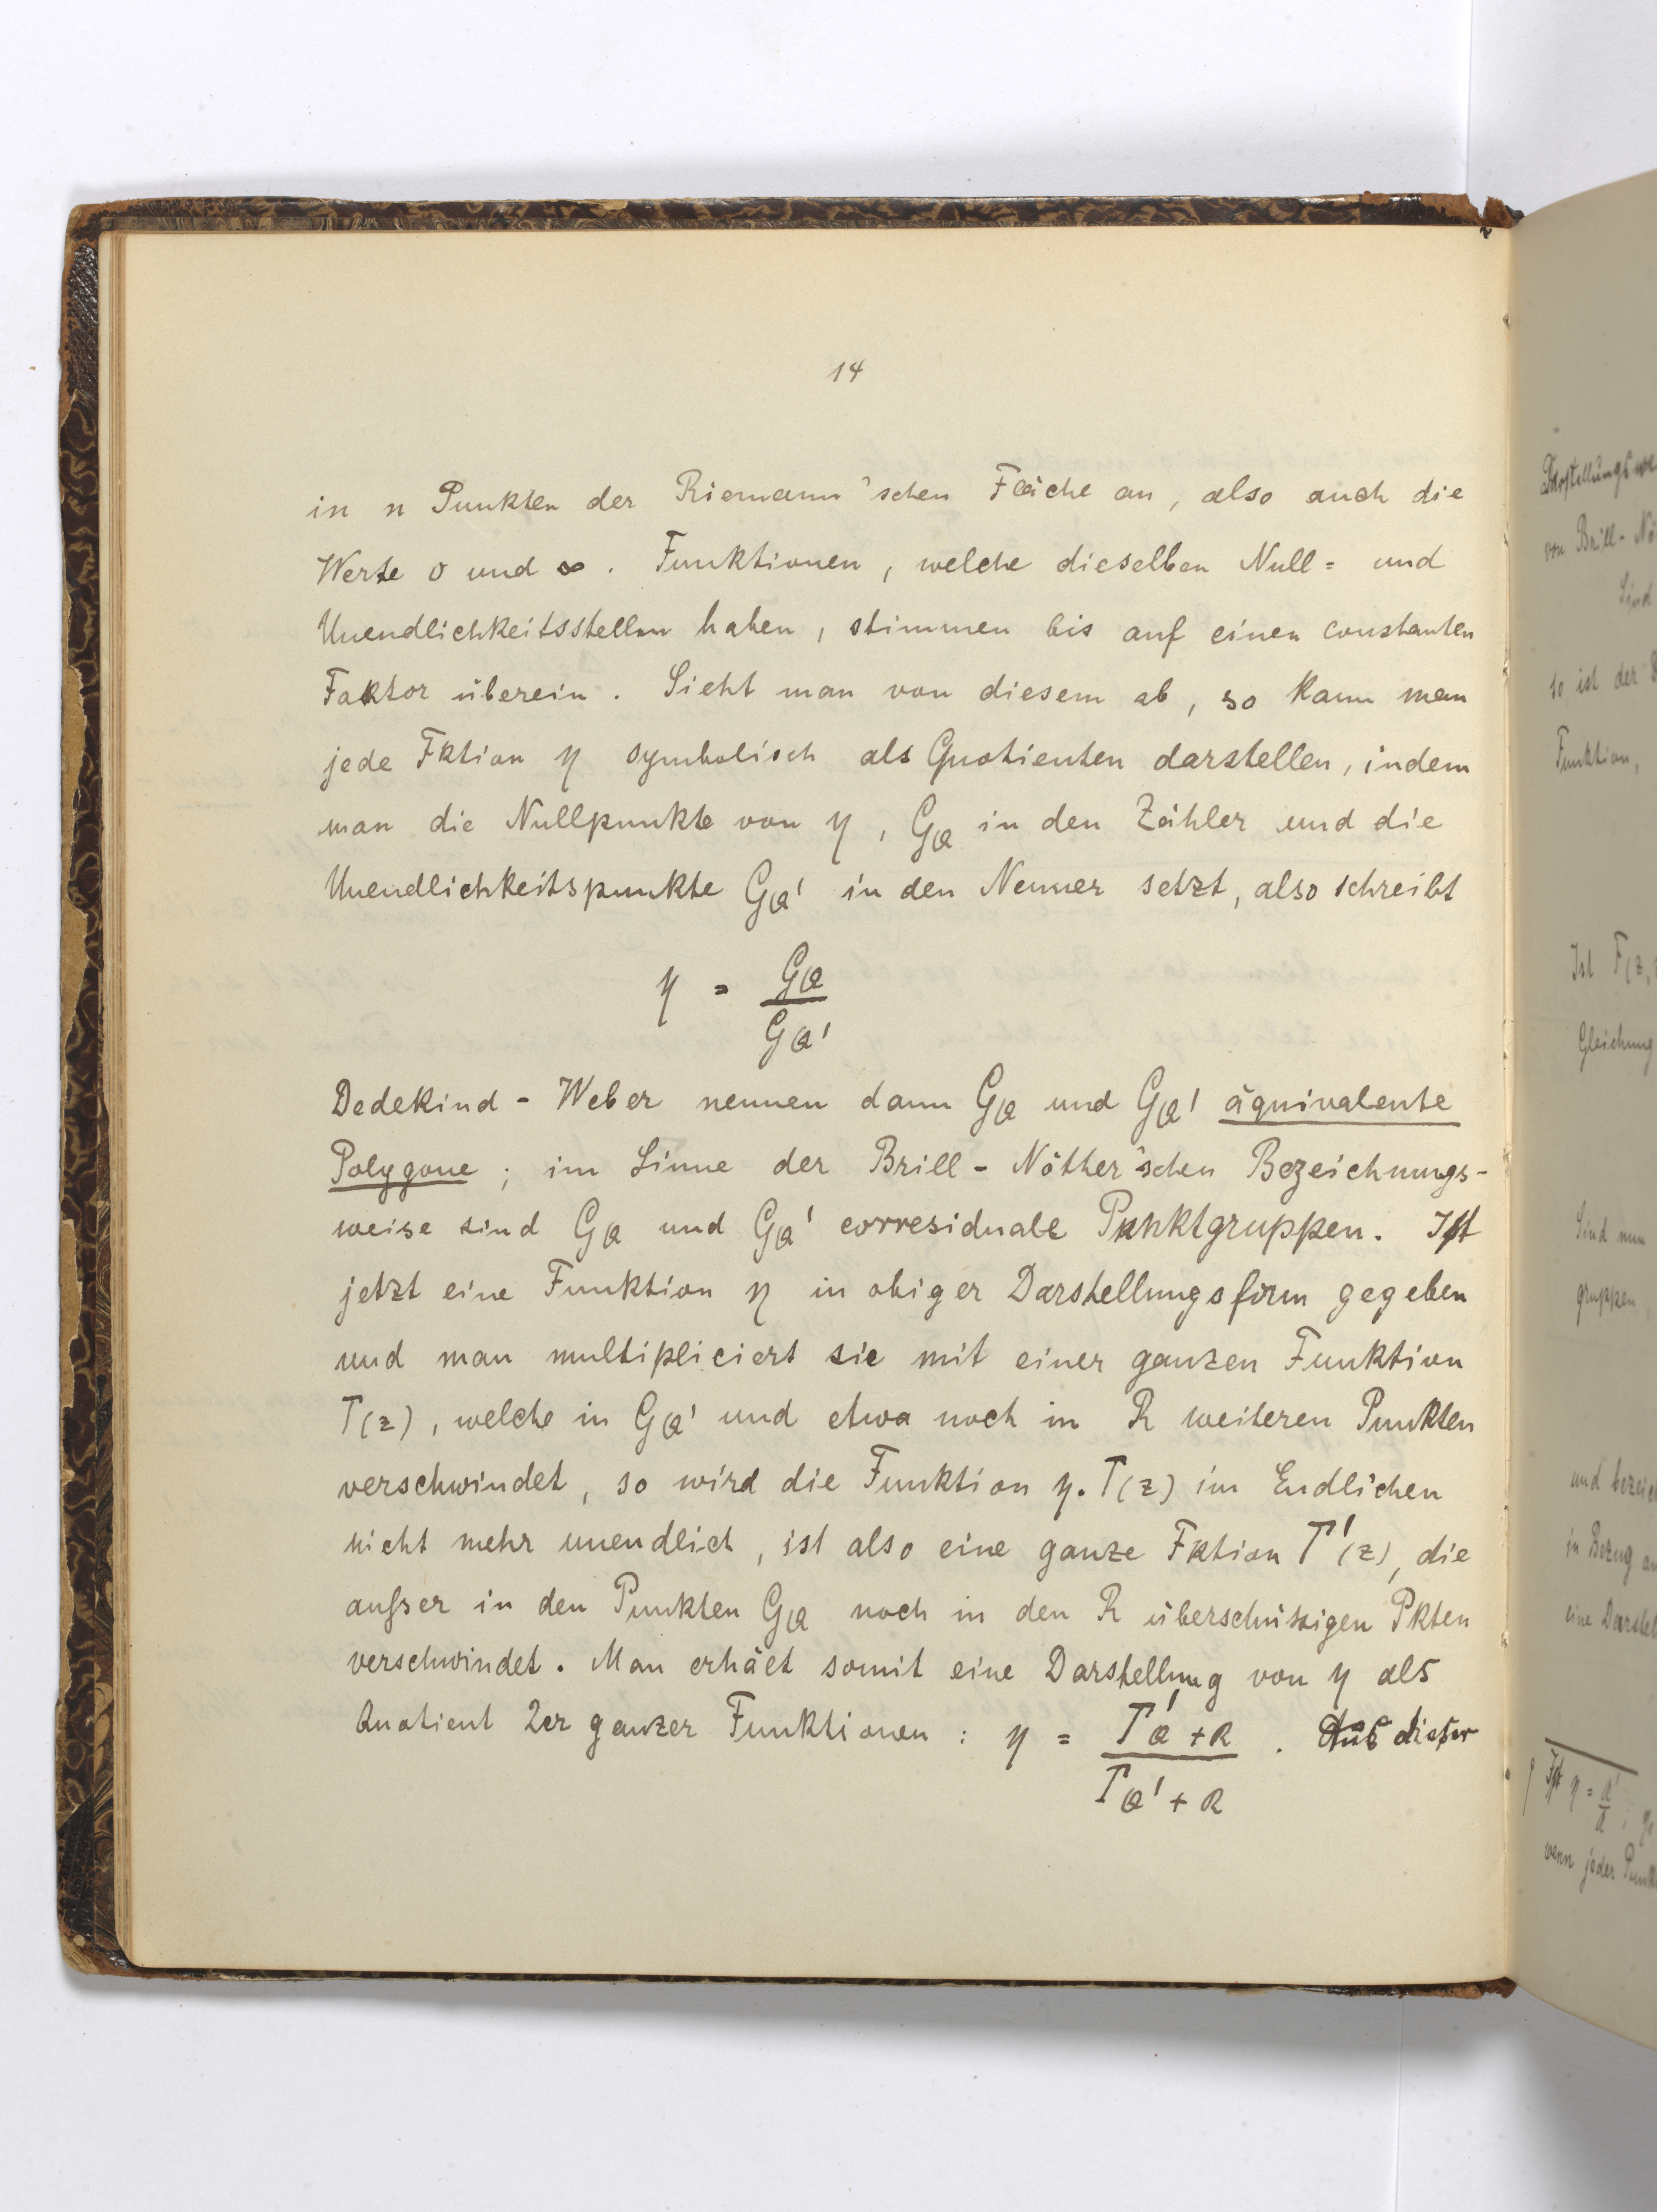 14
in n Punkten der Riemann'schen Fläche an, also auch die
Werte 0 und ∞. Funktionen, welche dieselben Null= und
Unendlichkeitsstellen haben, stimmen bis auf einen constanten
Faktor überein. Sieht man von diesem ab, so kann man
jede Fktion η symbolisch als Quotienten darstellen, indem
man die Nullpunkte von η, G_Q in den Zähler und die
Unendlichkeitspunkte G_Q' in den Nenner setzt, also schreibt
η = G_Q / G_Q'
Dedekind - Weber nennen dann G_Q und G_Q' äquivalente
Polygone; im Sinne der Brill - Nöther'schen Bezeichnungs-
weise sind G_Q und G_Q' corresiduale Punktgruppen. Ist
jetzt eine Funktion η in obiger Darstellungsform gegeben
und man multipliciert sie mit einer ganzen Funktion
Γ(z), welche in G_Q' und etwa noch in R weiteren Punkten
verschwindet, so wird die Funktion η. Γ(z) im Endlichen
nicht mehr unendlich, ist also eine ganze Fktion Γ'(z), die
außer in den Punkten G_Q noch in den R überschüssigen Pkten
verschwindet. Man erhält somit eine Darstellung von η als
Quotient 2er ganzer Funktionen: η = Γ'_Q+R / Γ_Q'+R. Aus dieser
Darstellungswe
von Brill - Nö
Sind
so ist der
Funktion,
Ist F(z,
Gleichung
Sind nun
gruppen
und bezeic
in Bezug au
eine Darstel
Ist η =
wenn jeder Punk